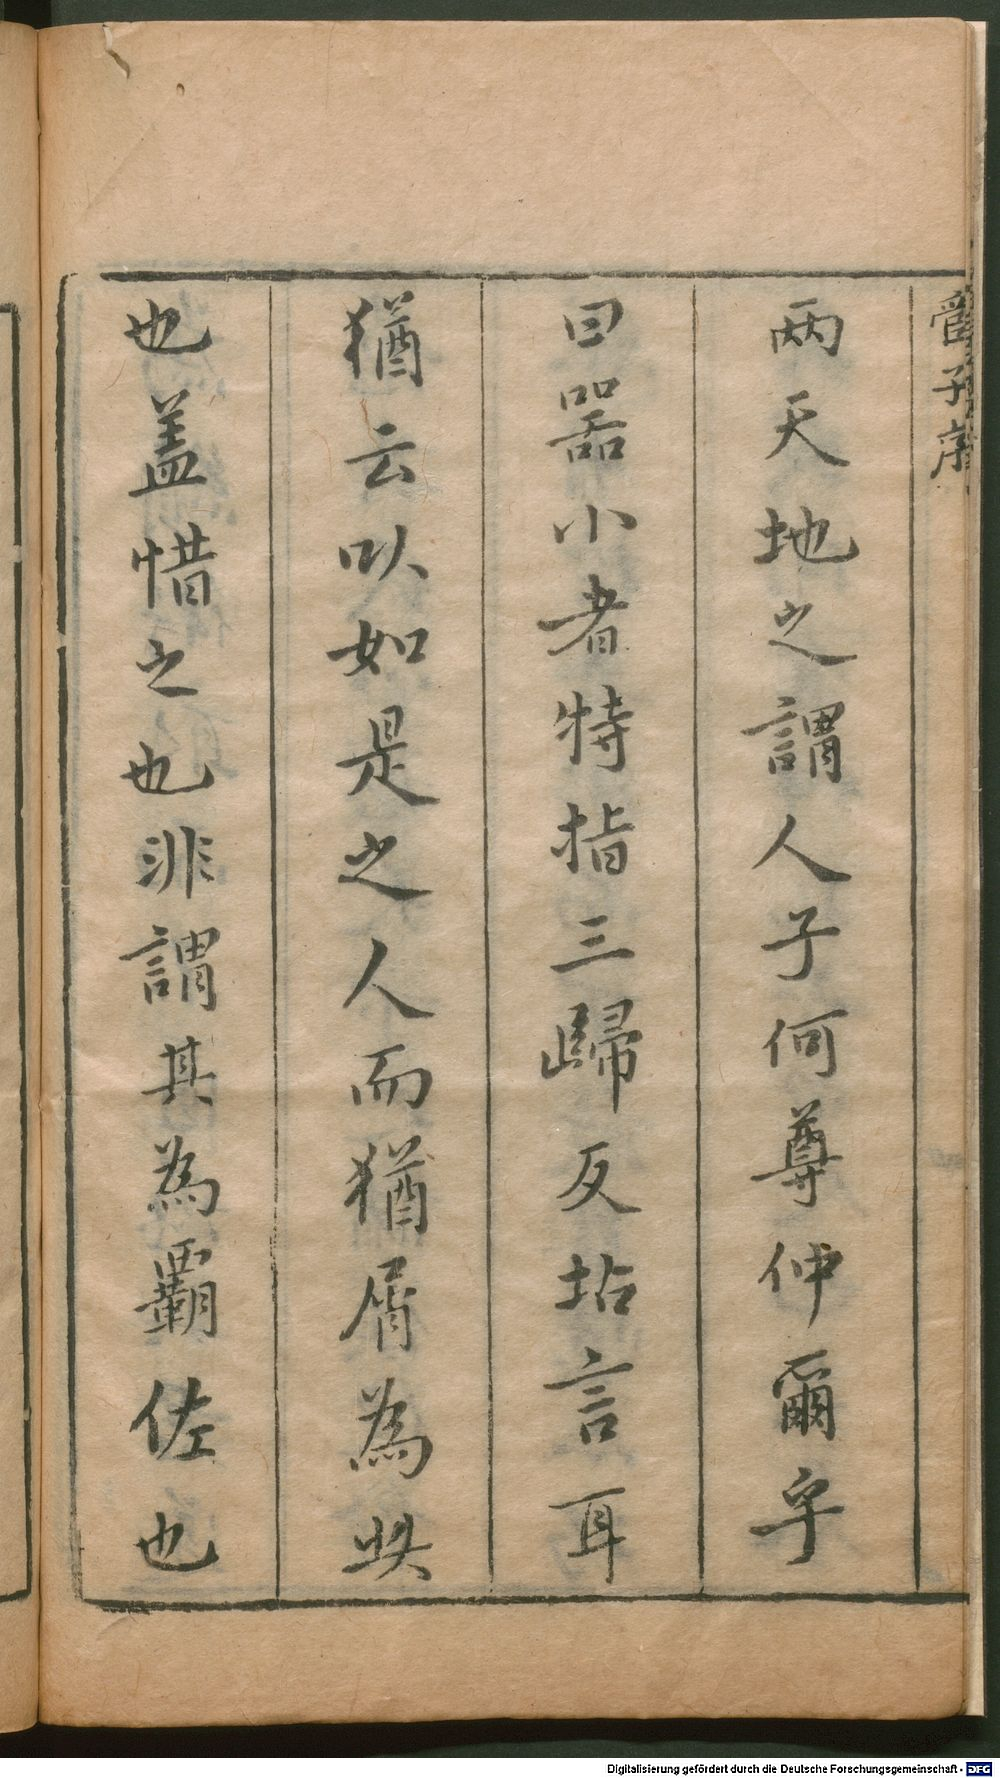 管子序
兩天地之謂人子何尊仲爾乎
曰器小者特指三歸反坫言耳
猶云以如是之人而猶屑為此
也蓋惜之也非謂其為霸佐也
Digitalisierung gefördert durch die Deutsche Forschungsgemeinschaft - DFG